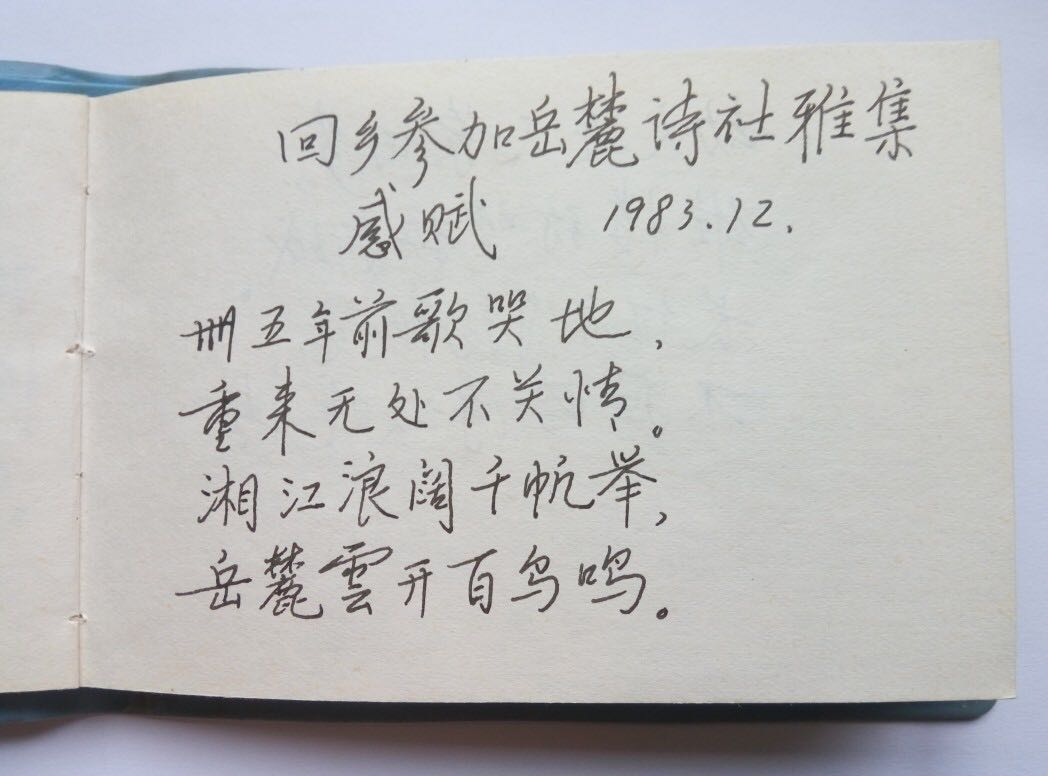 回乡参加岳麓诗社雅集
感赋 1983.12.
卌五年前歌哭地，
重来无处不关情。
湘江浪阔千帆举，
岳麓雲开百鸟鸣。